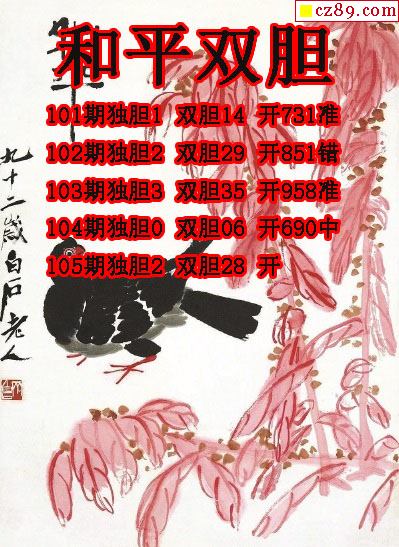 cz89.com
和平双胆
101期独胆1 双胆14 开731准
102期独胆2 双胆29 开851错
103期独胆3 双胆35 开958准
104期独胆0 双胆06 开690中
105期独胆2 双胆28 开
九十二岁白石老人